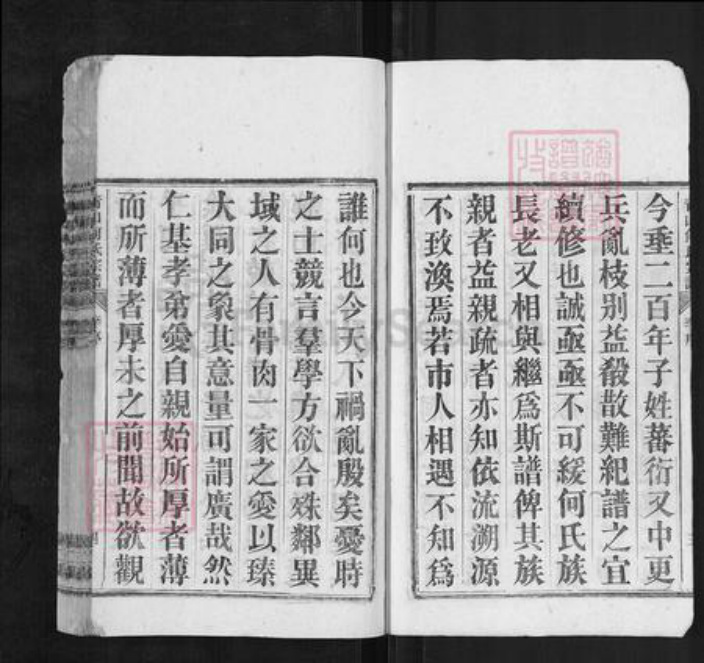 今垂二百年子姓蕃衍又中更
兵亂枝别益殽散難紀譜之宜
續修也誠亟亟不可緩何氏族
長老又相與繼爲斯譜俾其族
親者益親疏者亦知依流溯源
不致渙焉若市人相遇不知爲
誰何也今天下禍亂殷矣憂時
之士競言羣學方欲合殊鄰異
域之人有骨肉一家之愛以臻
大同之象其意量可謂廣哉然
仁基孝弟愛自親始所厚者薄
而所薄者厚未之前聞故欲觀